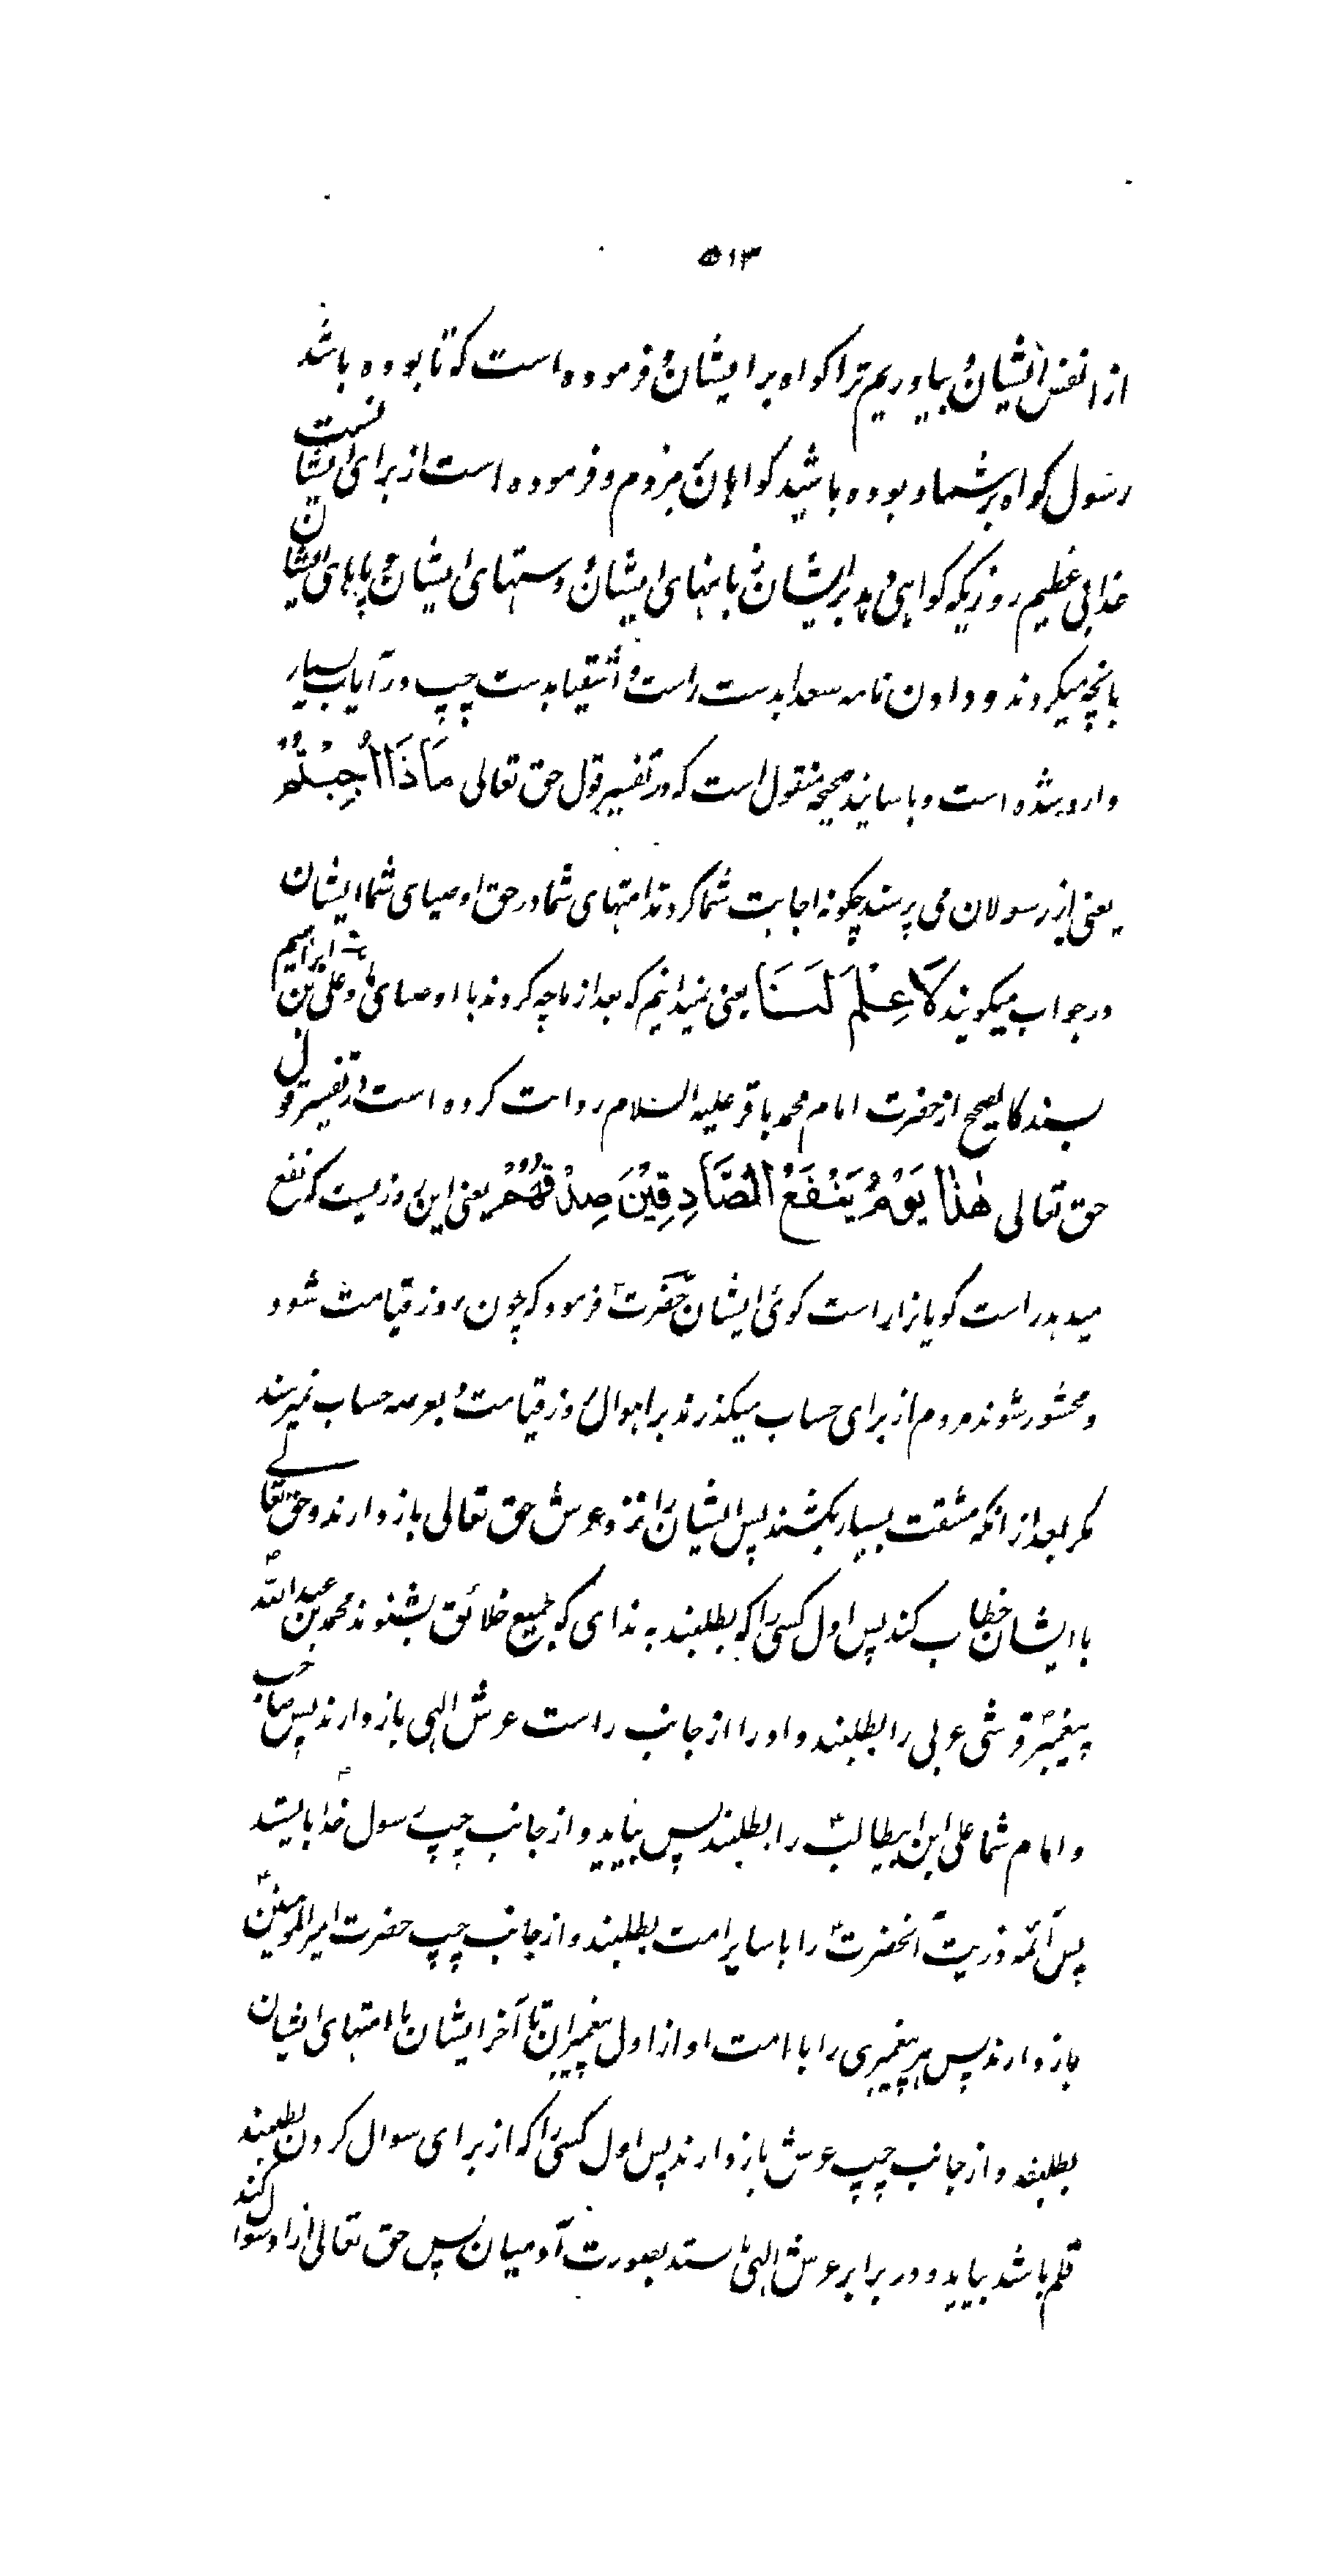 ٥١٣
از انفس ایشان و بیاوریم ترا کواه بر ایشان و فرموده است که تا بوده باشد
رسول کواه بر شما و بوده باشید کواهان بر مردم و فرموده است از برای ایشانست
عذابی عظیم روزیکه کواهی می دهد بر ایشان زبانهای ایشان و دستهای ایشان و پاهای ایشان
بانچه میکردند و دادن نامه سعدا بدست راست و اشقیا بدست چپ در آیات بسیار
وارد شده است و باسانید صحیحه منقول است که در تفسیر قول حق تعالی مَاذَا اُجِبْتُمْ
یعنی از رسولان می پرسند چکونه اجابت شما کردند امتهای شما در حق اوصیای شما ایشان
در جواب میکویند لَا عِلْمَ لَنَا یعنی نمیدانیم که بعد از ما چه کردند با اوصیای ما و علی بن ابراهیم
بسند کالصحیح از حضرت امام محمد باقر علیه السلام روایت کرده است در تفسیر قول
حق تعالی هٰذَا يَوْمُ يَنْفَعُ الصَّادِقِيْنَ صِدْقُهُمْ یعنی این روزیست که نفع
میدهد راست کویانرا راست کوئی ایشان حضرت فرمود که چون روز قیامت شود
و محشور شوند مردم از برای حساب میکذرند بر اهوال روز قیامت و بعرصه حساب نمیرسند
مکر بعد از انکه مشقت بسیار بکشند پس ایشان را نزد عرش حق تعالی باز دارند و حق تعالے
با ایشان خطاب کند پس اول کسی را که بطلبند به ندای که جمیع خلائق بشنوند محمد بن عبد اللهؐ
پیغمبرؐ قرشی عربی را بطلبند و او را از جانب راست عرش الهی باز دارند پس صاحب
و امام شما علی ابن ابیطالبؑ را بطلبند پس بیاید و از جانب چپ رسول خداؐ بایستد
پس آئمه ذریت آنحضرتؑ را با سایر امت بطلبند و از جانب چپ حضرت امیر المومنینؑ
باز دارند پس هر پیغمبری را با امت او از اول پیغمبران تا آخر ایشان با امتهای ایشان
بطلبند و از جانب چپ عرش باز دارند پس اول کسی را که از برای سوال کردن بطلبند
قلم باشد بیاید و در برابر عرش الهی بایستد بصورت آدمیان پس حق تعالی از او سوال کند